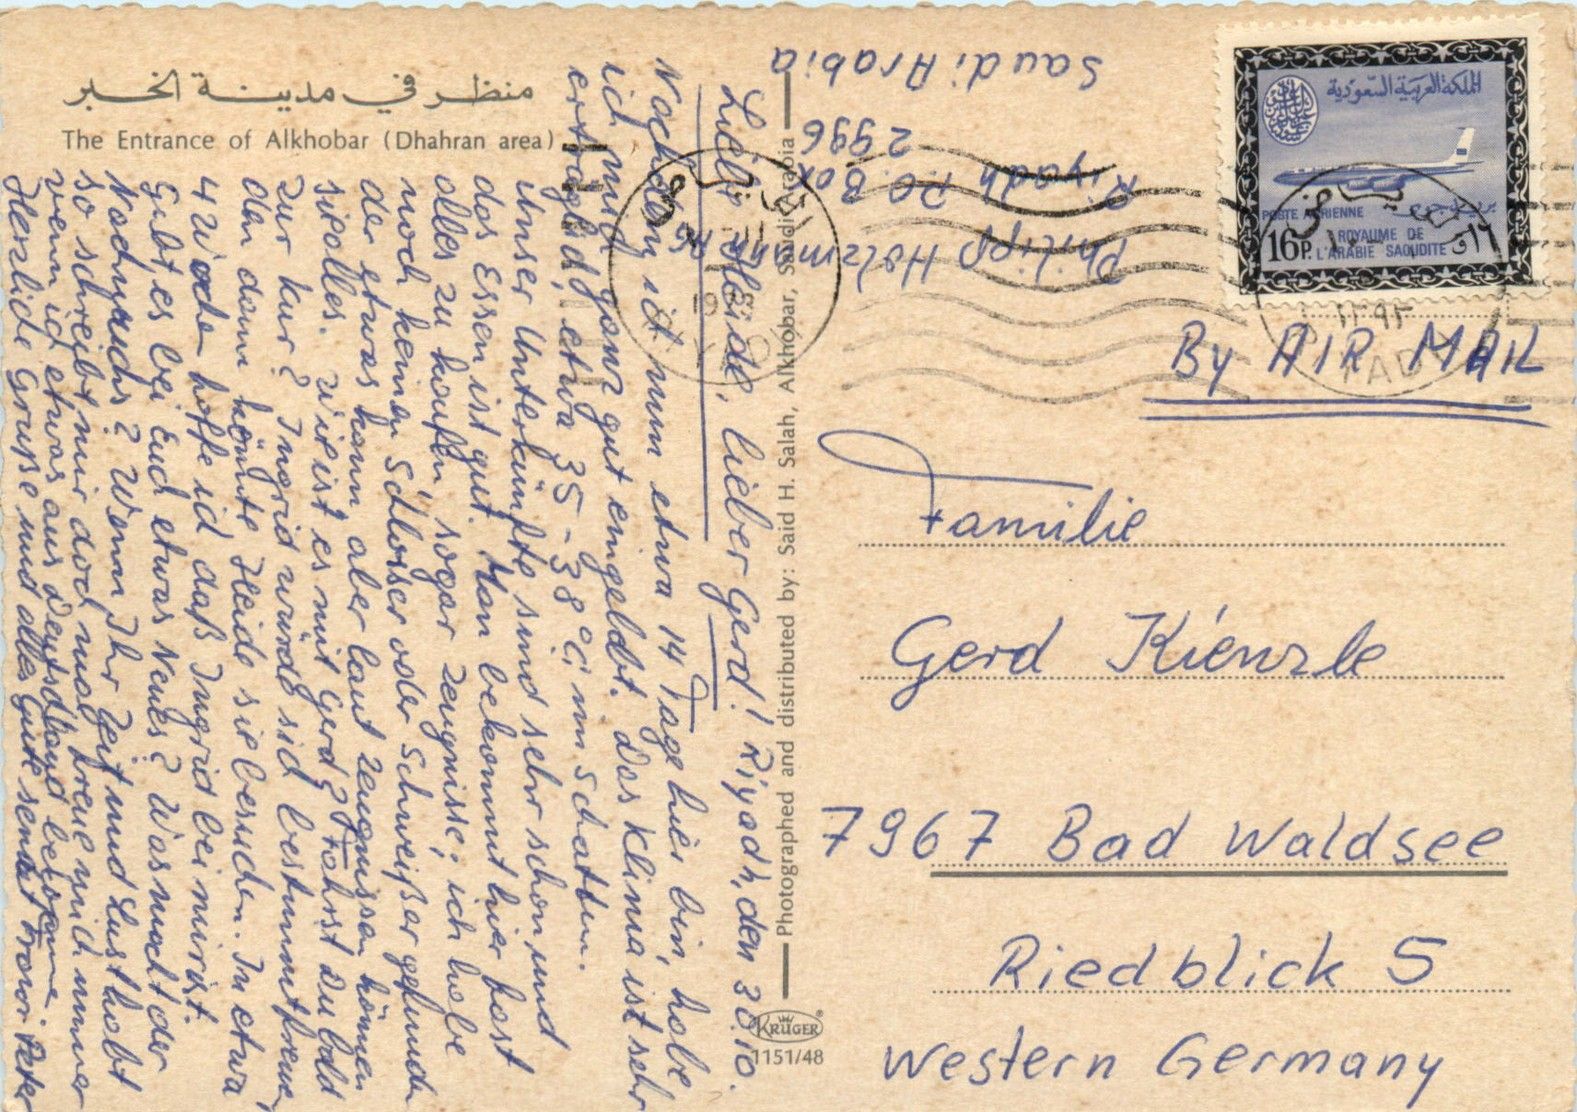 منظر في مدينة الخبر
The Entrance of Alkhobar (Dhahran area)
Liebe Heide, lieber Gerd! Riyadh, den 30.10.
Nachdem ich nun etwa 14 Tage hier bin, habe
ich mich ganz gut eingelebt. Das Klima ist sehr
erträglich, etwa 35-38°C im Schatten.
Unser Unterkünfte sind sehr schön und
das Essen ist gut. Man bekommt hier fast
alles zu kaufen, sogar Zeugnisse; ich habe
noch keinen Schlosser oder Schweißer gefunden
der etwas kann aber laut Zeugnissen können
sie alles. Wie ist es mit Gerd? Fährst Du bald
zur Kur? Ingrid würde sich bestimmt freuen,
den dann könnte Heide sie besuchen. In etwa
4 Wochen hoffe ich, daß Ingrid bei mir ist.
Gibt es bei Euch etwas Neues? Was macht der
Nachwuchs? Wenn Ihr Zeit und Lust habt
so schreibt mir doch mal, freue mich immer
wenn ich etwas aus Deutschland bekomme
Herzliche Grüße und alles Gute sendet Peter
Photographed and distributed by: Said H. Salah, Alkhobar, Saudi Arabia
KRÜGER®
1151/48
Philipp Holzmann AG
Riyadh P.O. Box
2996
Saudi Arabia
المملكة العربية السعودية
بريد جوي
POSTE AERIENNE
16P.
ROYAUME DE
L'ARABIE SAOUDITE
الرياض
By AIR MAIL
Familie
Gerd Kienzle
7967 Bad Waldsee
Riedblick 5
Western Germany